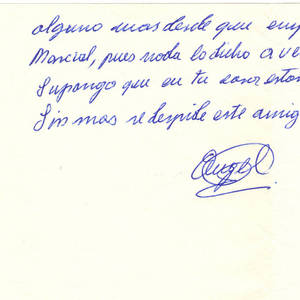 alguno mas desde que emp
Marcial, pues nada lo dicho a ve
Supongo que en tu casa estan
Sin mas se despide este amig
Angel